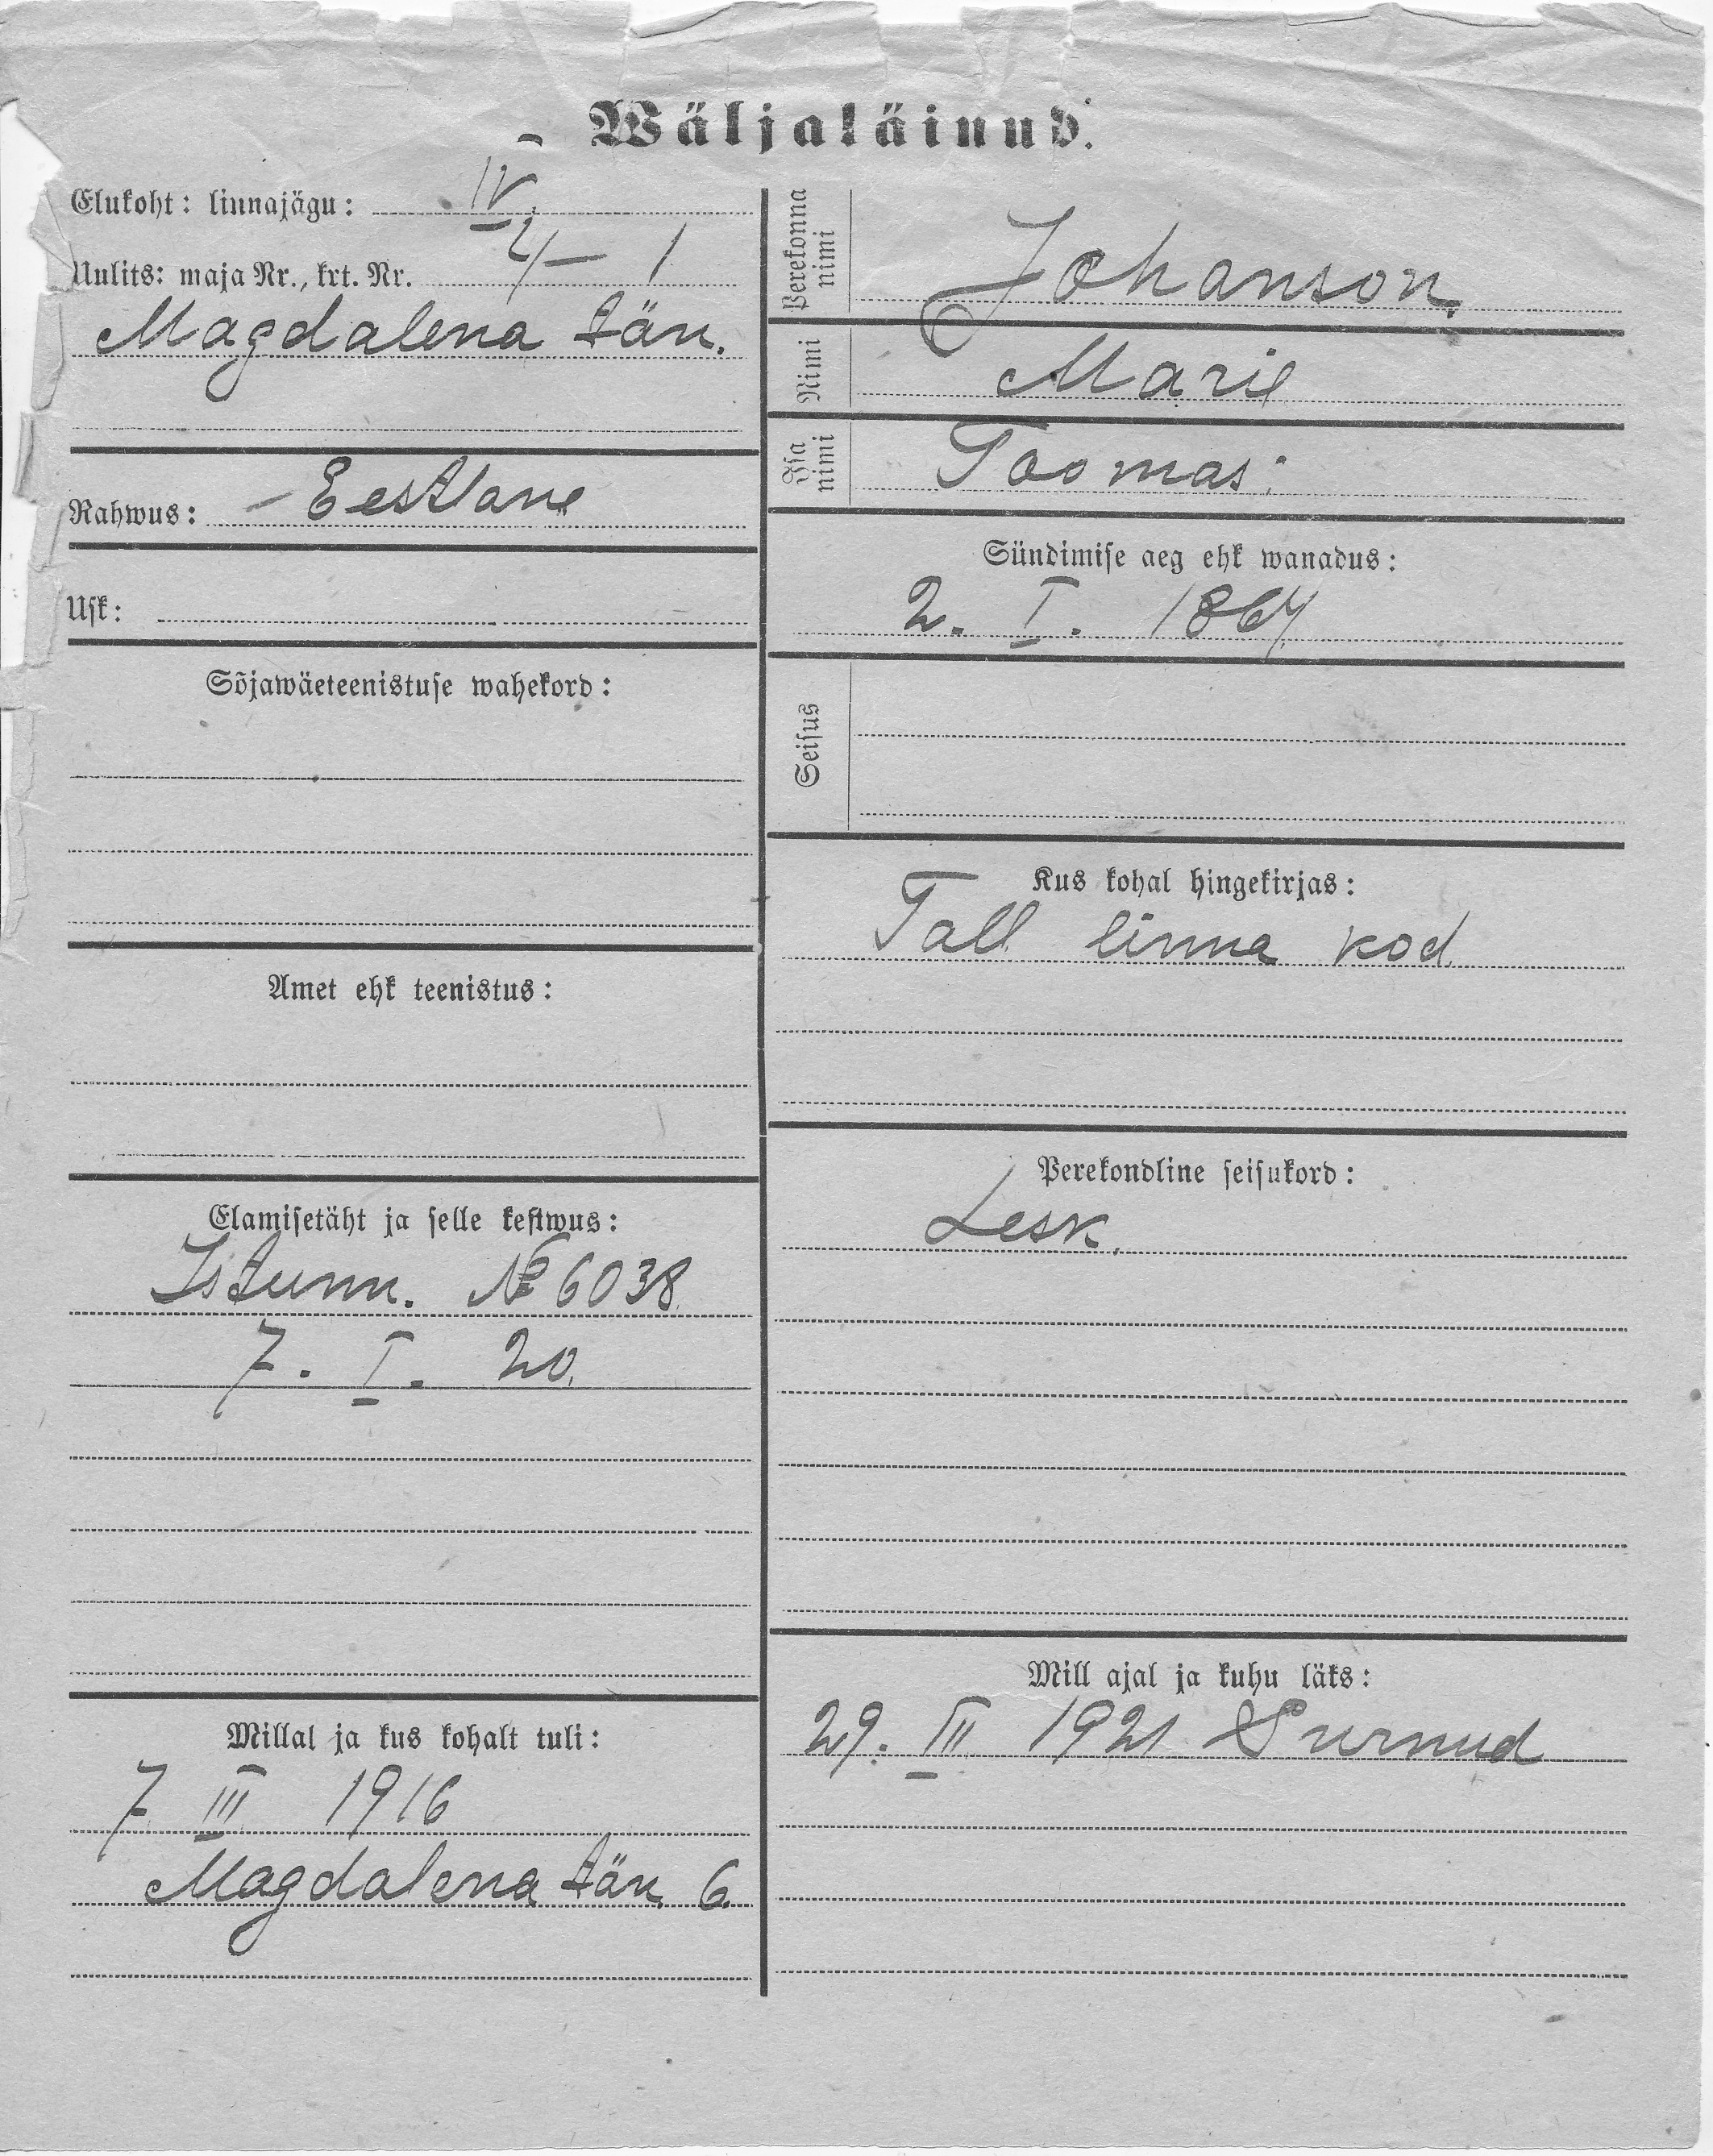 Wäljaläinud.
Elukoht: linnajägu: IV
Uulits: maja Nr., krt. Nr. 4 — 1
Magdalena tän.
Rahwus: Eestlane
Usk:
Sõjawäeteenistuse wahekord:
Amet ehk teenistus:
Elamisetäht ja selle kestwus:
Istunn. № 6038
7. I. 20.
Millal ja kus kohalt tuli:
7. III 1916
Magdalena tän. 6.
Perekonna nimi
Johanson.
Nimi
Marie
Isa nimi
Toomas
Sündimise aeg ehk wanadus:
2. I. 1864
Seisus
Kus kohal hingekirjas:
Tall linna kod.
Perekondline seisukord:
Lesk.
Mill ajal ja kuhu läks:
29. III 1921 Surnud